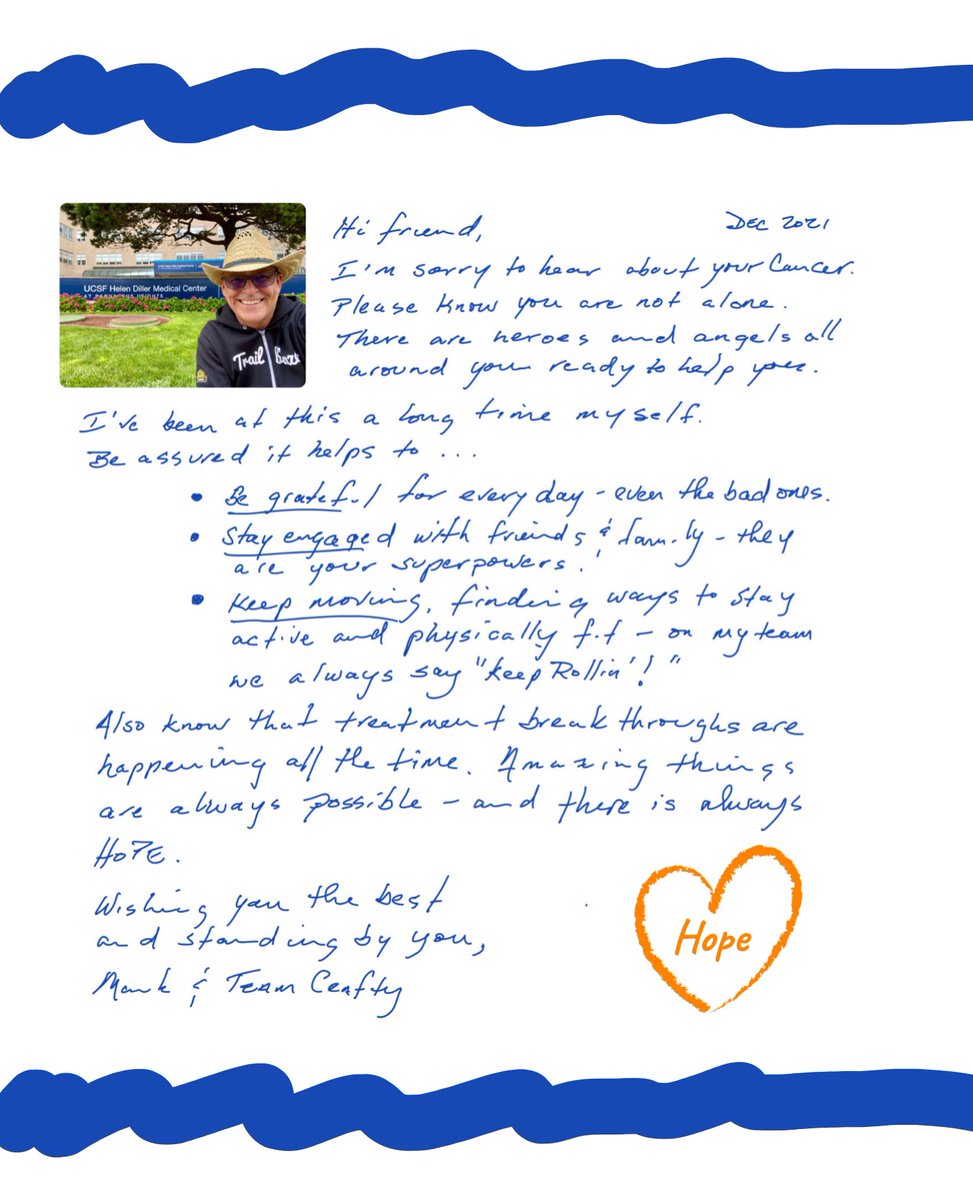 UCSF Helen Diller Medical Center
AT PARNASSUS HEIGHTS
UCSF Helen Diller Medical Center
Trail
DEC 2021
Hi friend,
I'm sorry to hear about your Cancer.
Please know you are not alone.
There are heroes and angels all
around you ready to help you.
I've been at this a long time myself.
Be assured it helps to ...
• Be grateful for every day - even the bad ones.
• Stay engaged with friends & family - they
are your superpowers!
• Keep moving, finding ways to stay
active and physically fit - on my team
we always say "Keep Rollin'!"
Also know that treatment breakthroughs are
happening all the time. Amazing things
are always possible - and there is always
HOPE.
Wishing you the best
and standing by you,
Mark & Team Crafty
Hope